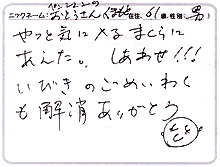 ニックネーム:おとうさん( 在住, 61歳, 性別: 男)
やっと気に入るまくらに
あえた。しあわせ!!!
いびきのごめいわく
も解消ありがとう